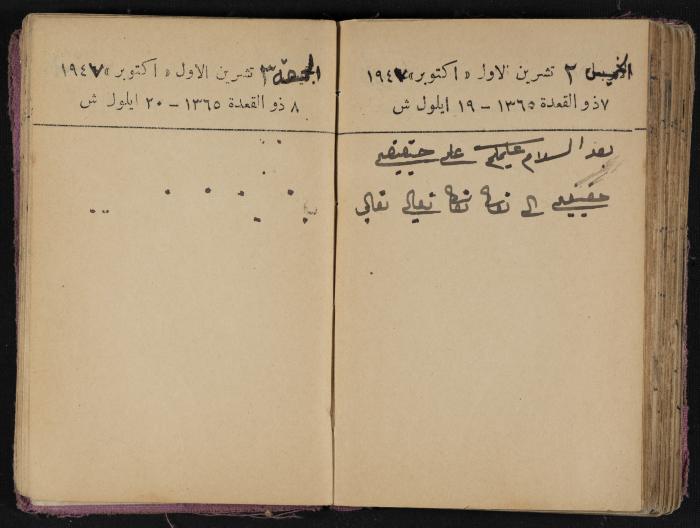 الخميس ٢ تشرين الاول « اكتوبر » ١٩٤٧
٧ ذو القعدة ١٣٦٥ - ١٩ ايلول ش
بعد السلام عليكم على
الى تعالى تعالى
الجمعة ٣ تشرين الاول « اكتوبر » ١٩٤٧
٨ ذو القعدة ١٣٦٥ - ٢٠ ايلول ش